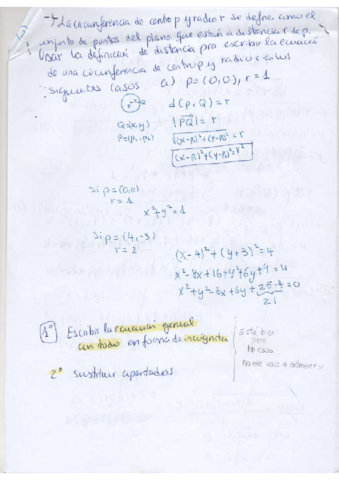 -> La circunferencia de centro p y radio r se define como el
conjunto de puntos del plano que están a distancia r de p.
Usar la definición de distancia pra escribir la ecuación
de una circunferencia de centro p y radio r en los
siguientes casos a) p=(0,0), r=1
r Q d(p,Q)=r
Q=(x,y) |PQ|=r
P=(p₁,p₂) √(x-p₁)²+(y-p₂)²=r
(x-p₁)²+(y-p₂)²=r²
Si p=(0,0)
r=1
x²+y²=1
Si p=(4,-3)
r=2
(x-4)²+(y+3)²=4
x²-8x+16+y²+6y+9=4
x²+y²-8x+6y+25-4=0
21
1º Escribir la ecuación general
con todo en forma de incógnita
Está bien
pero
Ni caso
No me voy a
2º sustituir apartados